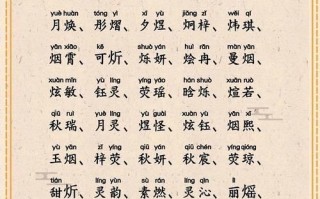 yuè huàn tóng yì xī yù jiǒng zǐ wěi qí
月焕、彤熠、夕煜、炯梓、炜琪、
yān xiāo xīn shuò yán huì rǎn màn yān
烟霄、可炘、烁妍、烩冉、曼烟、
xuàn mǐn yù líng yíng yáo hán shuò xuān ruò
炫敏、钰灵、荧瑶、晗烁、煊若、
qiū ruì yuè líng yù xuàn yù yān xī
秋瑞、月灵、煜怪、炫钰、烟熙、
yù yān zǐ yíng qiū yán qiū chén yíng qióng
玉烟、梓荧、秋妍、秋宸、荧琼、
tián líng yùn sù rán líng qìn lì
甜炘、灵韵、素燃、灵沁、丽熎、